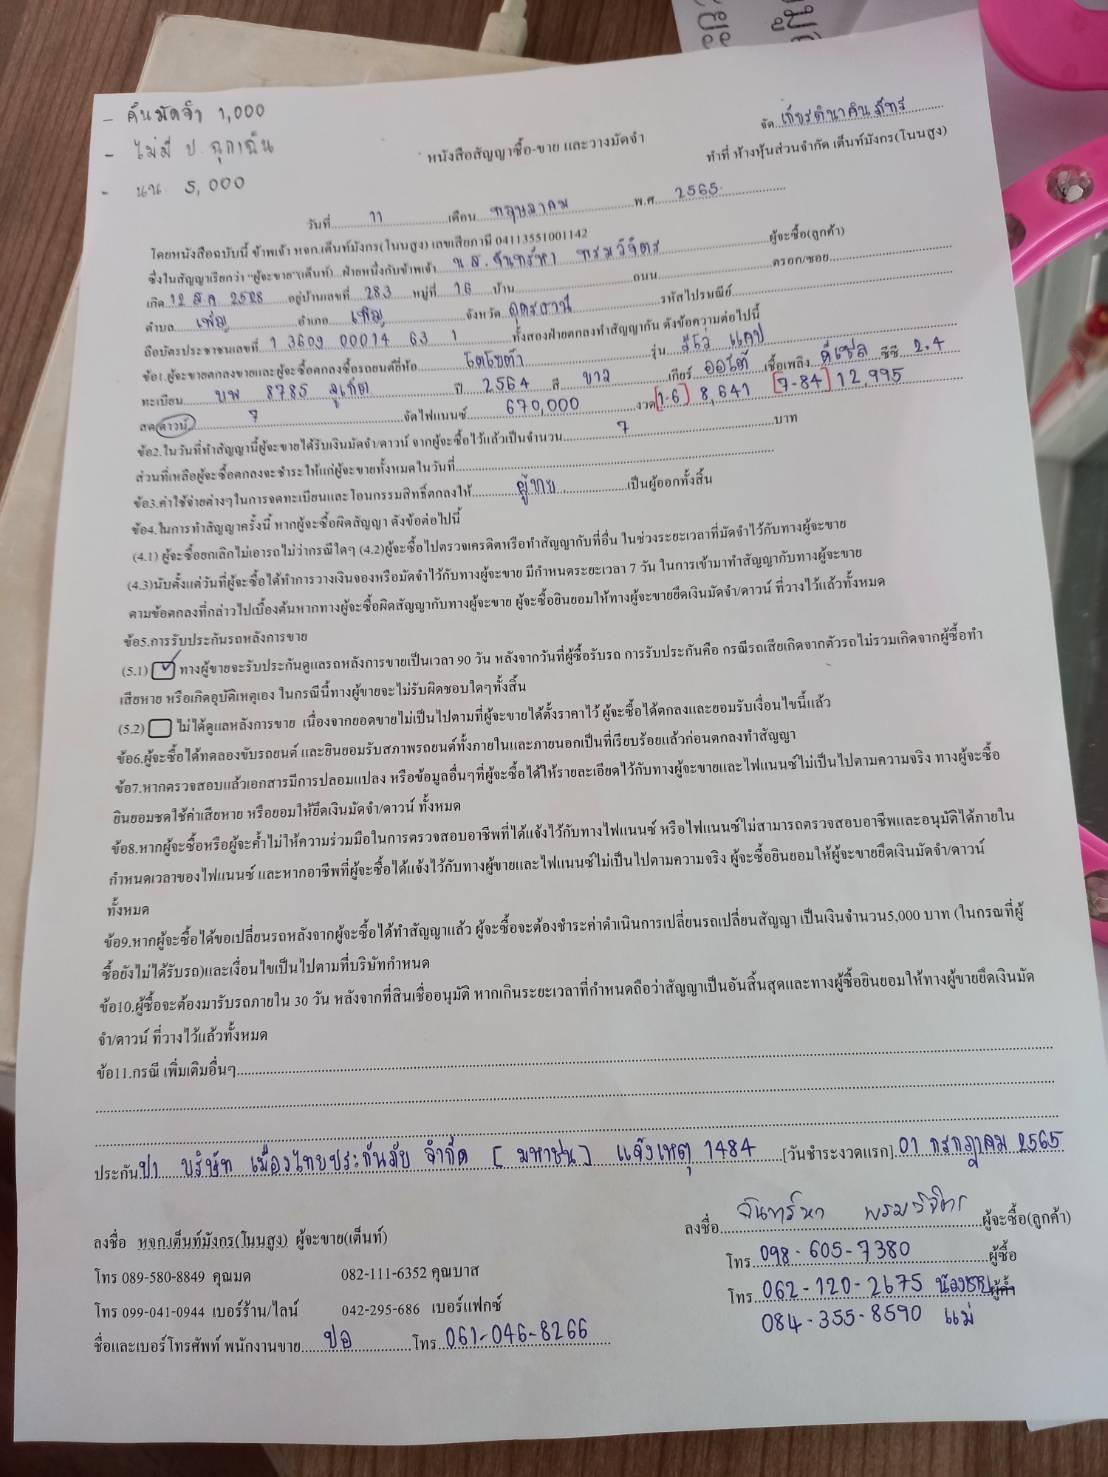 - คืนมัดจำ 1,000
- ไม่มี ป. ฉุกเฉิน
- นน 5,000
จัด เกียรตินาคินภัทร
หนังสือสัญญาซื้อ-ขาย และวางมัดจำ
ทำที่ ห้างหุ้นส่วนจำกัด เต็นท์มังกร(โนนสูง)
วันที่ 11 เดือน พฤษภาคม พ.ศ. 2565
โดยหนังสือฉบับนี้ ข้าพเจ้า หจก.เต็นท์มังกร(โนนสูง) เลขเสียภาษี 04113551001142
ซึ่งในสัญญาเรียกว่า "ผู้จะขาย"(เต็นท์) ฝ่ายหนึ่งกับข้าพเจ้า น.ส. จันทร์หา พรมวิจิตร ผู้จะซื้อ(ลูกค้า)
เกิด 12 ส.ค. 2528 อยู่บ้านเลขที่ 283 หมู่ที่ 16 บ้าน ถนน ตรอก/ซอย
ตำบล เพ็ญ อำเภอ เพ็ญ จังหวัด อุดรธานี รหัสไปรษณีย์
ถือบัตรประชาชนเลขที่ 1 3609 00014 63 1 ทั้งสองฝ่ายตกลงทำสัญญากัน ดังข้อความต่อไปนี้
ข้อ1.ผู้จะขายตกลงขายและผู้จะซื้อตกลงซื้อรถยนต์ยี่ห้อ โตโยต้า รุ่น รีโว่ แคป
ทะเบียน บพ 8785 ภูเก็ต ปี 2564 สี ขาว เกียร์ ออโต้ เชื้อเพลิง ดีเซล ซีซี 2.4
สด/ดาวน์ 7 จัดไฟแนนซ์ 670,000 งวด [1-6] 8,641 [7-84] 12,995
ข้อ2.ในวันที่ทำสัญญานี้ผู้จะขายได้รับเงินมัดจำ/ดาวน์ จากผู้จะซื้อไว้แล้วเป็นจำนวน 7 บาท
ส่วนที่เหลือผู้จะซื้อตกลงจะชำระให้แก่ผู้จะขายทั้งหมดในวันที่
ข้อ3.ค่าใช้จ่ายต่างๆในการจดทะเบียนและโอนกรรมสิทธิ์ตกลงให้ ผู้ขาย เป็นผู้ออกทั้งสิ้น
ข้อ4.ในการทำสัญญาครั้งนี้ หากผู้จะซื้อผิดสัญญา ดังข้อต่อไปนี้
(4.1) ผู้จะซื้อยกเลิกไม่เอารถไม่ว่ากรณีใดๆ (4.2)ผู้จะซื้อไปตรวจเครดิตหรือทำสัญญากับที่อื่น ในช่วงระยะเวลาที่มัดจำไว้กับทางผู้จะขาย
(4.3)นับตั้งแต่วันที่ผู้จะซื้อได้ทำการวางเงินจองหรือมัดจำไว้กับทางผู้จะขาย มีกำหนดระยะเวลา 7 วัน ในการเข้ามาทำสัญญากับทางผู้จะขาย
ตามข้อตกลงที่กล่าวไปเบื้องต้นหากทางผู้จะซื้อผิดสัญญากับทางผู้จะขาย ผู้จะซื้อยินยอมให้ทางผู้จะขายยึดเงินมัดจำ/ดาวน์ ที่วางไว้แล้วทั้งหมด
ข้อ5.การรับประกันรถหลังการขาย
(5.1) ทางผู้ขายจะรับประกันดูแลรถหลังการขายเป็นเวลา 90 วัน หลังจากวันที่ผู้ซื้อรับรถ การรับประกันคือ กรณีรถเสียเกิดจากตัวรถไม่รวมเกิดจากผู้ซื้อทำ
เสียหาย หรือเกิดอุบัติเหตุเอง ในกรณีนี้ทางผู้ขายจะไม่รับผิดชอบใดๆทั้งสิ้น
(5.2) ไม่ได้ดูแลหลังการขาย เนื่องจากยอดขายไม่เป็นไปตามที่ผู้จะขายได้ตั้งราคาไว้ ผู้จะซื้อได้ตกลงและยอมรับเงื่อนไขนี้แล้ว
ข้อ6.ผู้จะซื้อได้ทดลองขับรถยนต์ และยินยอมรับสภาพรถยนต์ทั้งภายในและภายนอกเป็นที่เรียบร้อยแล้วก่อนตกลงทำสัญญา
ข้อ7.หากตรวจสอบแล้วเอกสารมีการปลอมแปลง หรือข้อมูลอื่นๆที่ผู้จะซื้อได้ให้รายละเอียดไว้กับทางผู้จะขายและไฟแนนซ์ไม่เป็นไปตามความจริง ทางผู้จะซื้อ
ยินยอมชดใช้ค่าเสียหาย หรือยอมให้ยึดเงินมัดจำ/ดาวน์ ทั้งหมด
ข้อ8.หากผู้จะซื้อหรือผู้จะค้ำไม่ให้ความร่วมมือในการตรวจสอบอาชีพที่ได้แจ้งไว้กับทางไฟแนนซ์ หรือไฟแนนซ์ไม่สามารถตรวจสอบอาชีพและอนุมัติได้ภายใน
กำหนดเวลาของไฟแนนซ์ และหากอาชีพที่ผู้จะซื้อได้แจ้งไว้กับทางผู้ขายและไฟแนนซ์ไม่เป็นไปตามความจริง ผู้จะซื้อยินยอมให้ผู้จะขายยึดเงินมัดจำ/ดาวน์
ทั้งหมด
ข้อ9.หากผู้จะซื้อได้ขอเปลี่ยนรถหลังจากผู้จะซื้อได้ทำสัญญาแล้ว ผู้จะซื้อจะต้องชำระค่าดำเนินการเปลี่ยนรถเปลี่ยนสัญญา เป็นเงินจำนวน5,000 บาท (ในกรณที่ผู้
ซื้อยังไม่ได้รับรถ)และเงื่อนไขเป็นไปตามที่บริษัทกำหนด
ข้อ10.ผู้ซื้อจะต้องมารับรถภายใน 30 วัน หลังจากที่สินเชื่ออนุมัติ หากเกินระยะเวลาที่กำหนดถือว่าสัญญาเป็นอันสิ้นสุดและทางผู้ซื้อยินยอมให้ทางผู้ขายยึดเงินมัด
จำ/ดาวน์ ที่วางไว้แล้วทั้งหมด
ข้อ11.กรณี เพิ่มเติมอื่นๆ
ประกัน ป1 บริษัท เมืองไทยประกันภัย จำกัด [มหาชน] แจ้งเหตุ 1484 [วันชำระงวดแรก] 01 กรกฎาคม 2565
ลงชื่อ จันทร์หา พรมวิจิตร ผู้จะซื้อ(ลูกค้า)
ลงชื่อ หจก.เต็นท์มังกร(โนนสูง) ผู้จะขาย(เต็นท์)
โทร 098-605-7380 ผู้ซื้อ
โทร 089-580-8849 คุณมด 082-111-6352 คุณบาส
โทร 062-120-2675 น้องชาย ผู้ค้ำ
โทร 099-041-0944 เบอร์ร้าน/ไลน์ 042-295-686 เบอร์แฟกซ์
084-355-8590 แม่
ชื่อและเบอร์โทรศัพท์ พนักงานขาย ปอ โทร 061-046-8266